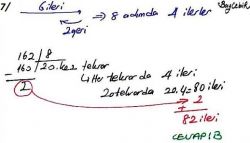 7/ 6 ileri ⇒ 8 adımda 4 ilerler
2 geri
162 | 8
160 | 20 kez tekrar
2
↳ Her tekrarda 4 ileri
20 tekrarda 20.4=80 ileri
+ 2
82 ileri
CEVAP B